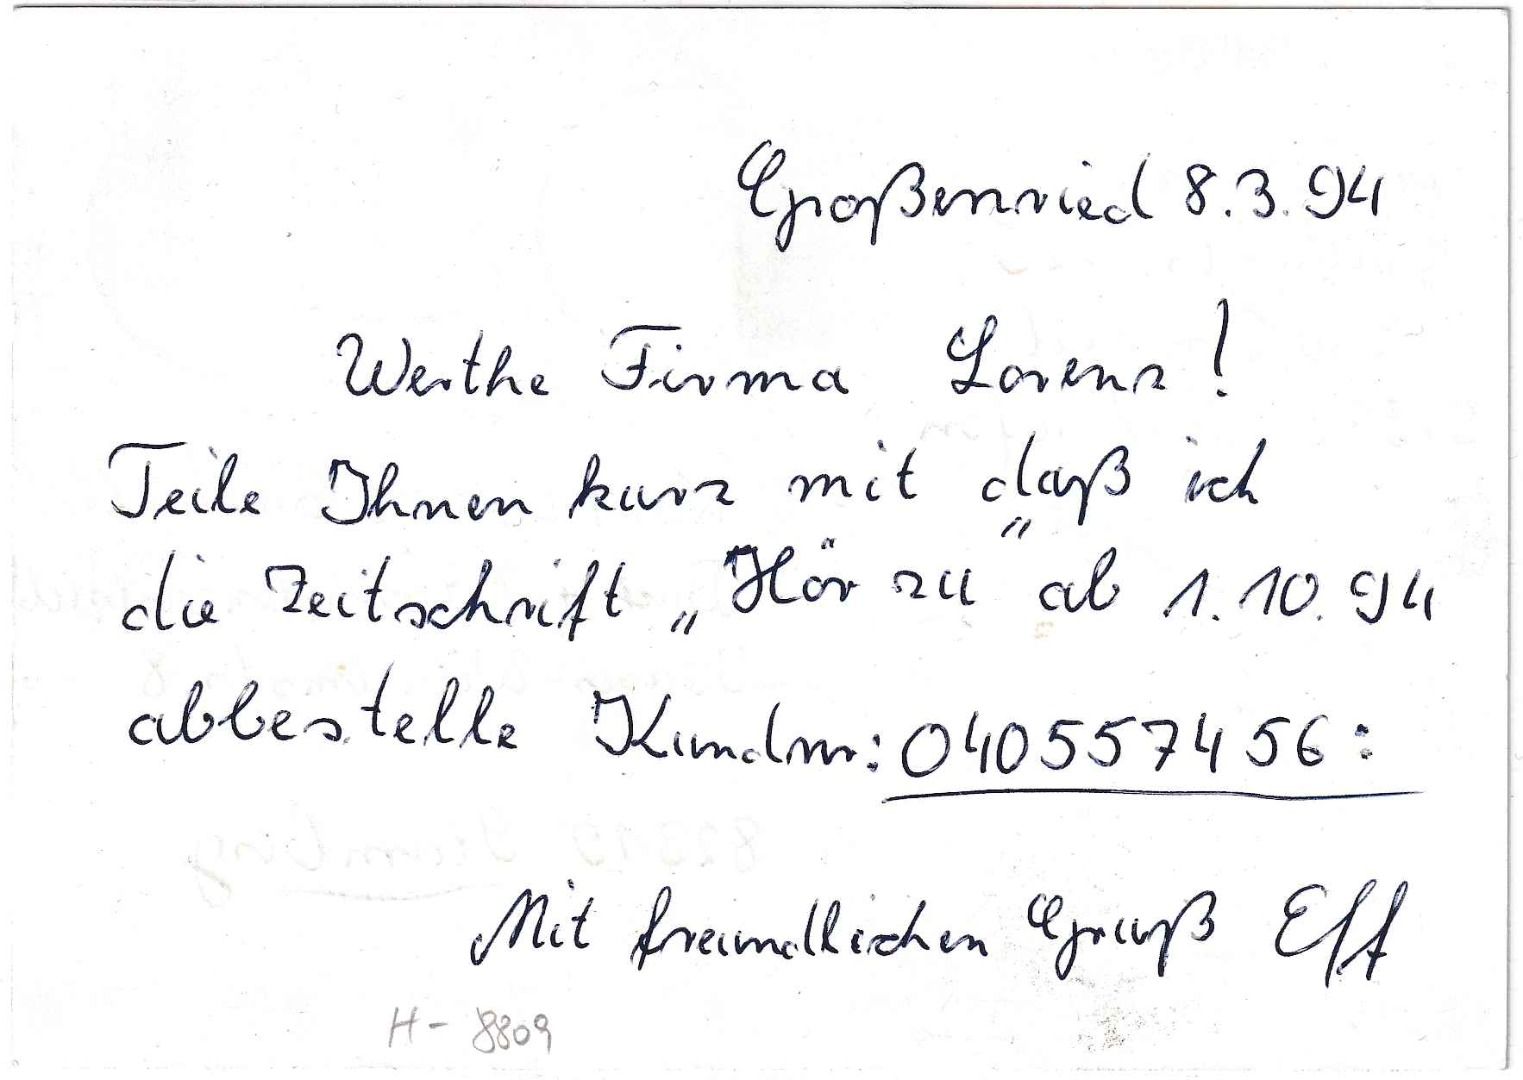 Großenried 8.3.94
Werthe Firma Lorenz!
Teile Ihnen kurz mit daß ich
die Zeitschrift „Hör zu" ab 1.10.94
abbestelle Kundnr: 040557456:
Mit freundlichen Gruß Eff
H-8809